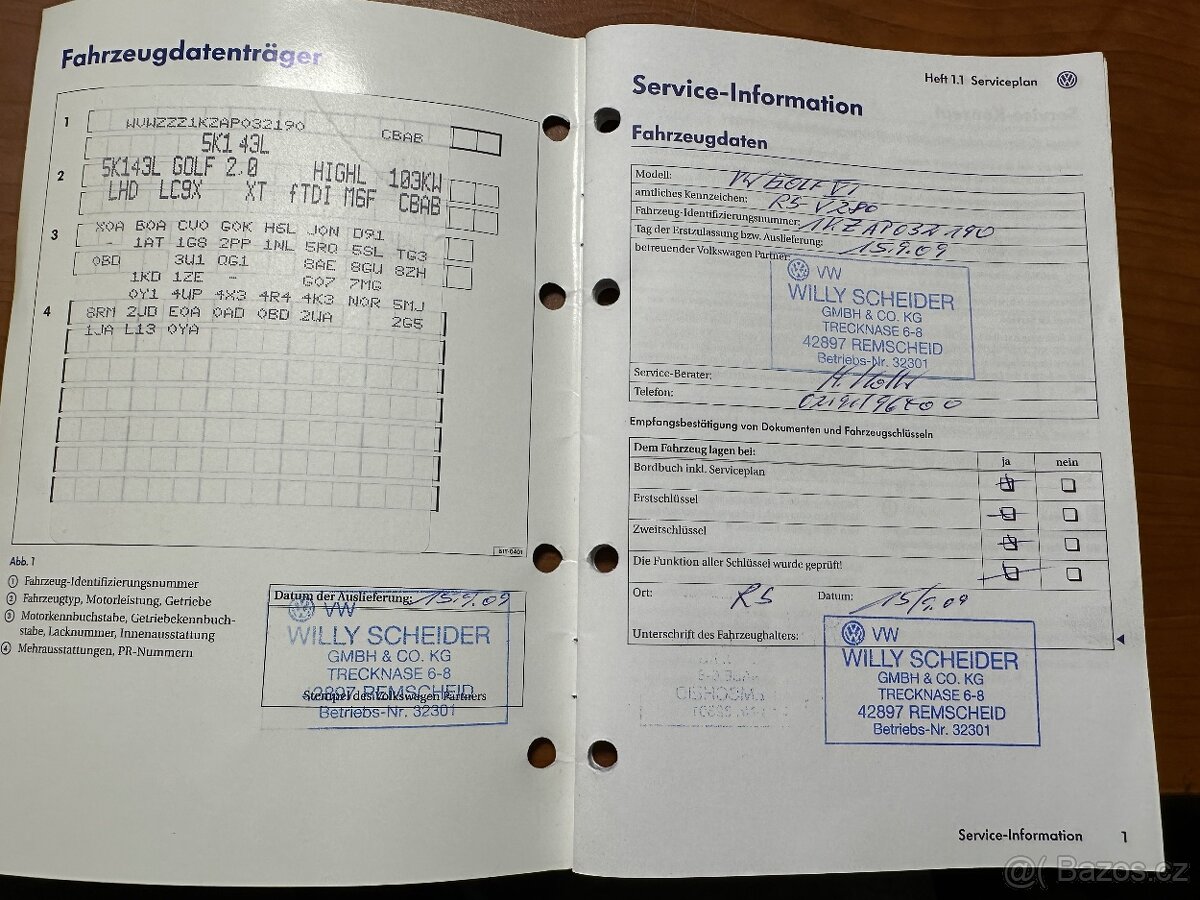 Fahrzeugdatenträger
1
WVWZZZ1KZAP032190
CBAB
5K1 43L
2
5K143L GOLF 2.0 HIGHL 103KW
LHD LC9X XT fTDI M6F CBAB
3
X0A B0A CV0 G0K H6L J0N D91
- 1AT 1G8 2PP 1NL 5RQ 5SL TG3
0BD 3W1 0G1 8AE 8GU 8ZH
1KD 1ZE - G07 7MG
0Y1 4UP 4X3 4R4 4K3 N0R 5MJ
4
8RM 2UD E0A 0AD 0BD 2WA 2G5
1JA L13 0YA
Abb. 1
① Fahrzeug-Identifizierungsnummer
② Fahrzeugtyp, Motorleistung, Getriebe
③ Motorkennbuchstabe, Getriebekennbuch-
stabe, Lacknummer, Innenausstattung
④ Mehrausstattungen, PR-Nummern
Datum der Auslieferung: 15.9.09
VW
WILLY SCHEIDER
GMBH & CO. KG
TRECKNASE 6-8
42897 REMSCHEID
Stempel des Volkswagen Partners
Betriebs-Nr. 32301
Heft 1.1 Serviceplan
Service-Information
Fahrzeugdaten
Modell: VW GOLF VI
amtliches Kennzeichen: RS V280
Fahrzeug-Identifizierungsnummer: 1KZAP032190
Tag der Erstzulassung bzw. Auslieferung: 15.9.09
betreuender Volkswagen Partner:
VW
WILLY SCHEIDER
GMBH & CO. KG
TRECKNASE 6-8
42897 REMSCHEID
Betriebs-Nr. 32301
Service-Berater:
Telefon:
Empfangsbestätigung von Dokumenten und Fahrzeugschlüsseln
Dem Fahrzeug lagen bei: ja nein
Bordbuch inkl. Serviceplan
Erstschlüssel
Zweitschlüssel
Die Funktion aller Schlüssel wurde geprüft!
Ort: RS Datum: 15/9.09
Unterschrift des Fahrzeughalters:
VW
WILLY SCHEIDER
GMBH & CO. KG
TRECKNASE 6-8
42897 REMSCHEID
Betriebs-Nr. 32301
Service-Information 1
@( Bazos.cz